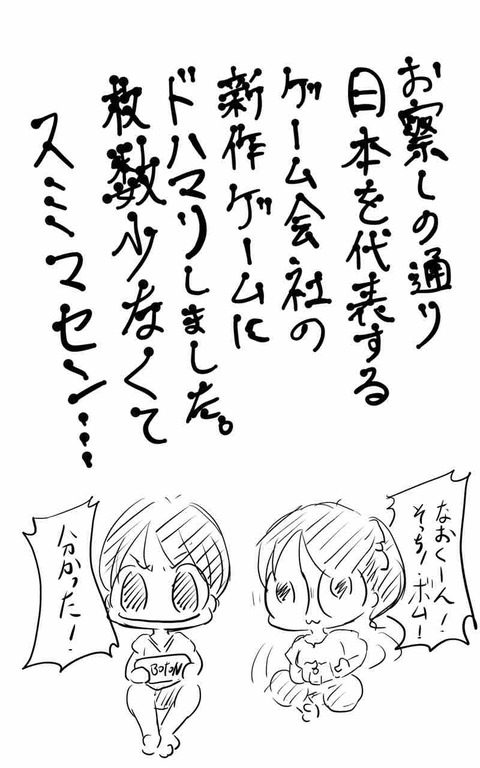 お察しの通り
日本を代表する
ゲーム会社の
新作ゲームに
ドハマりしました。
枚数少なくて
スミマセン…
なおくーん!
そっち!ボム!
分かった!